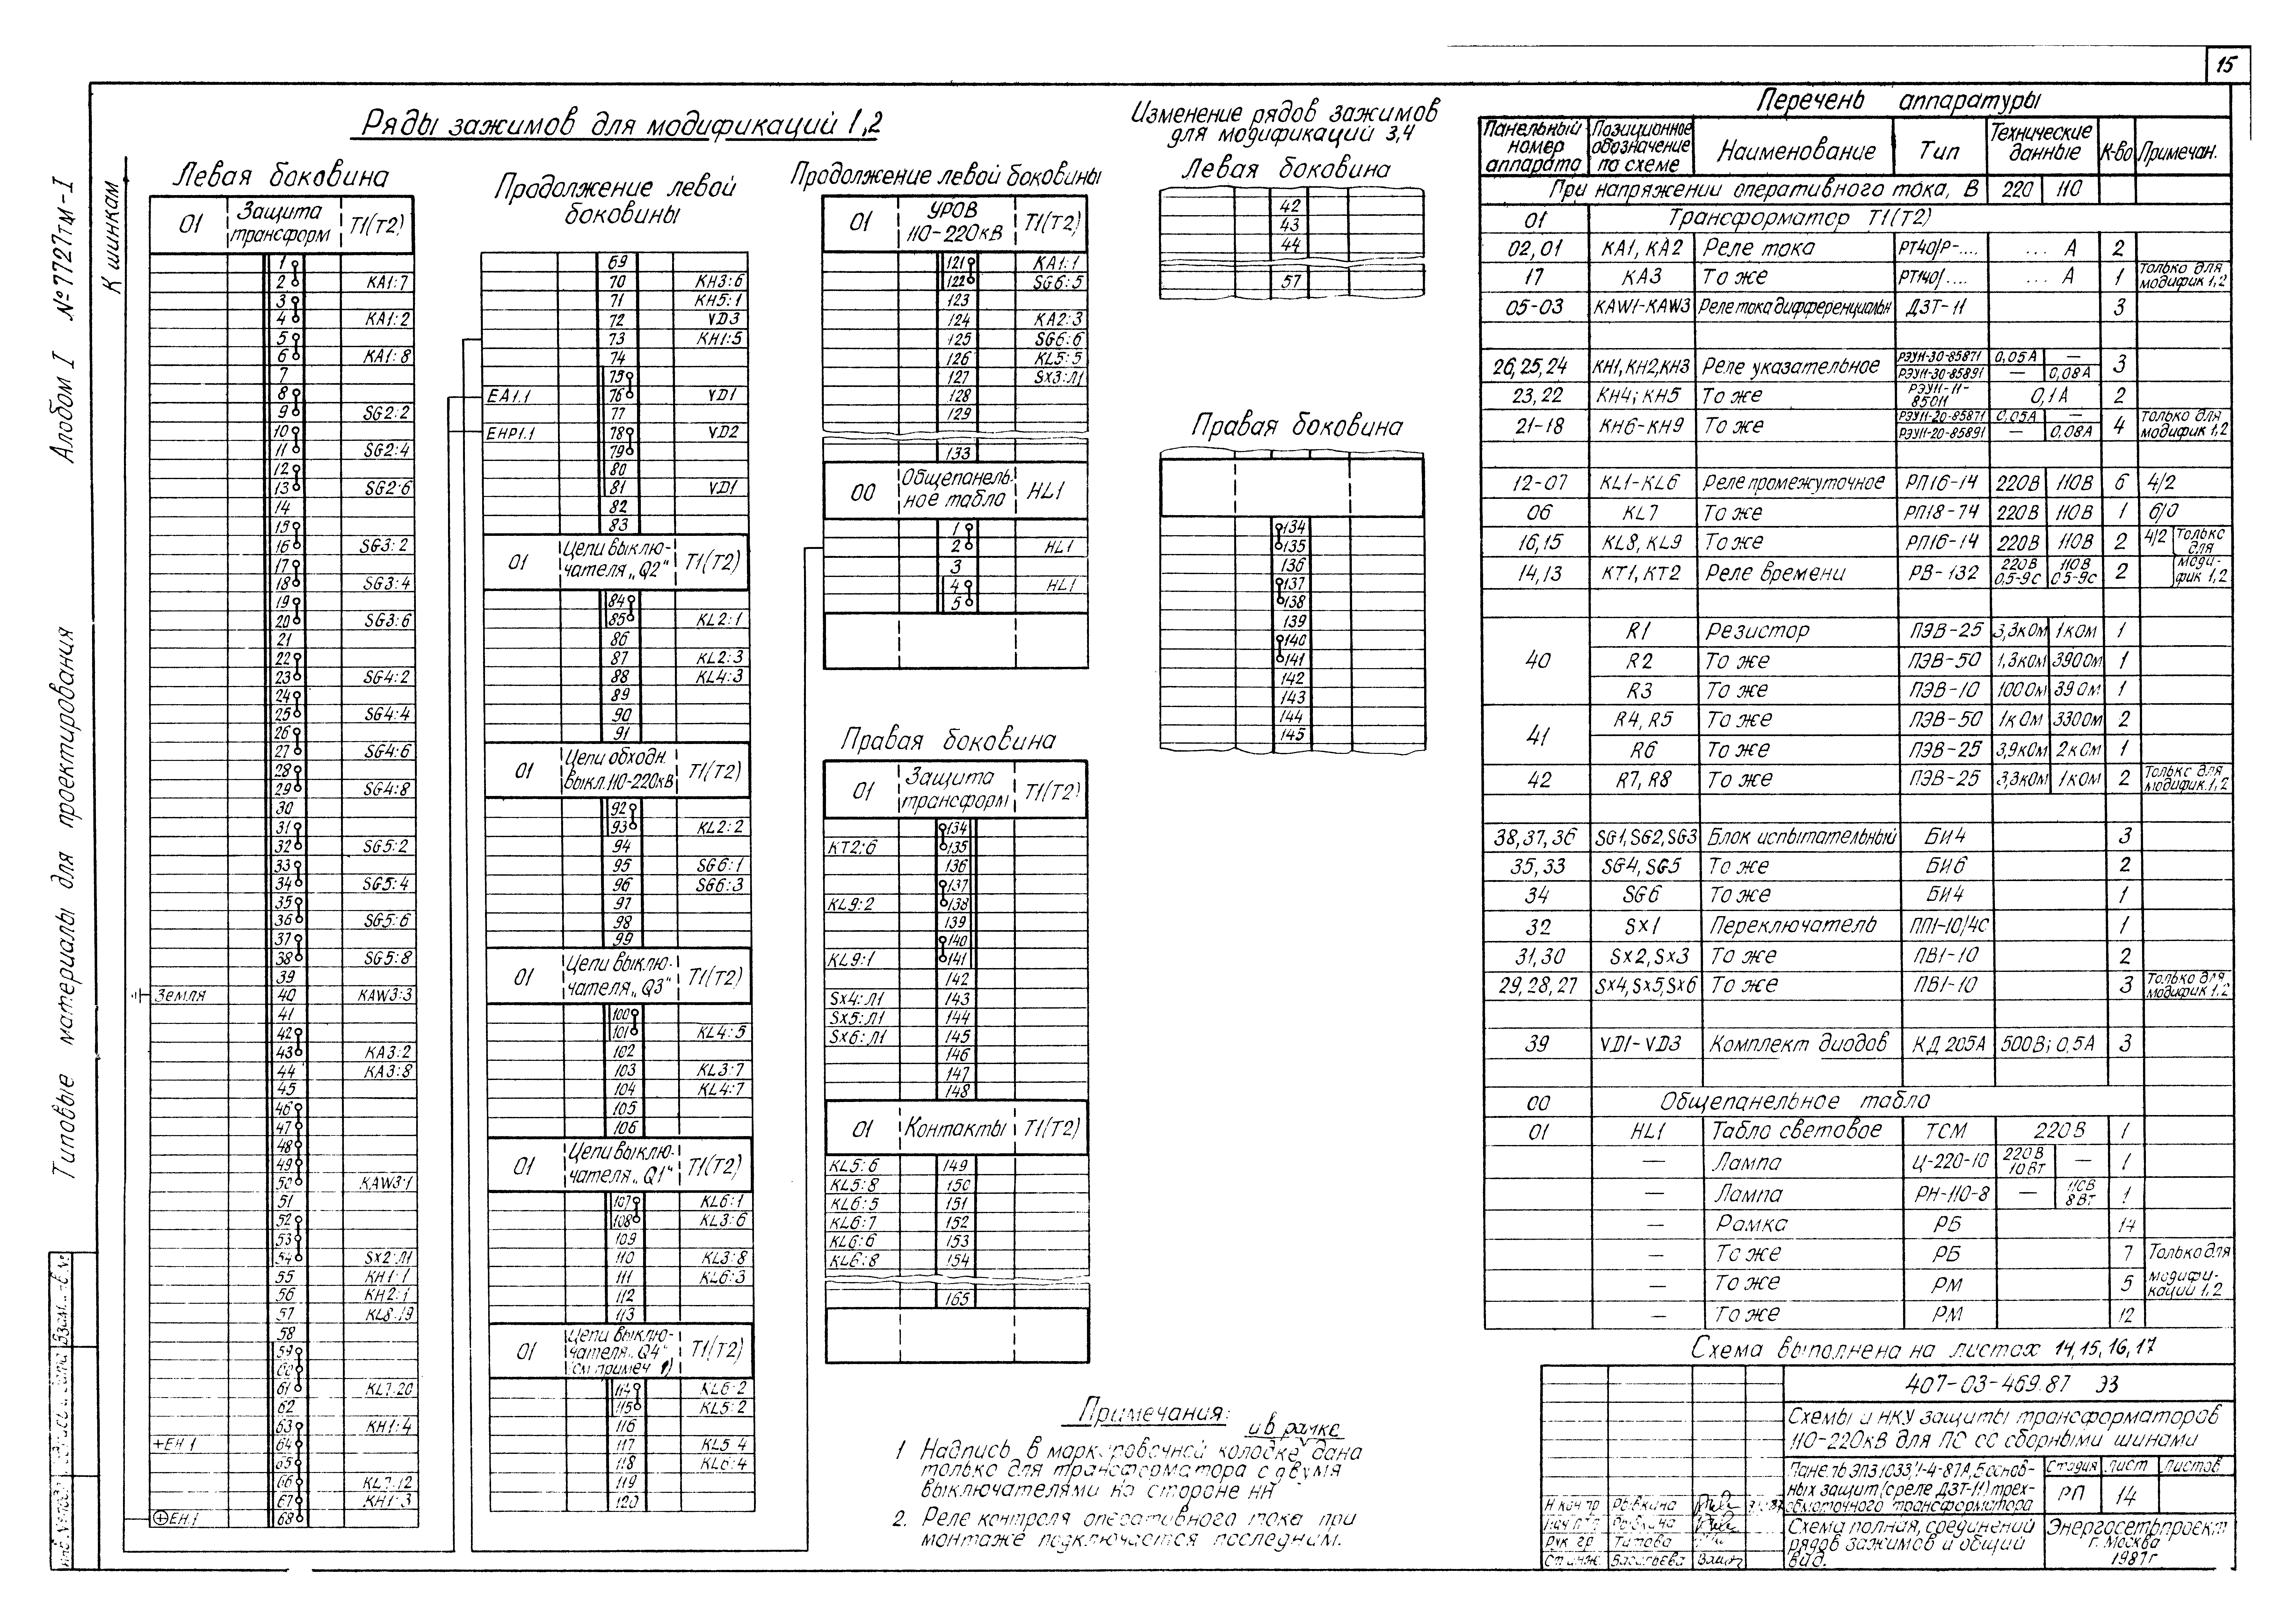 15
Альбом I № 7727тм-I
Типовые материалы для проектирования
К шинкам
Ряды зажимов для модификаций 1,2
Левая боковина
01 Защита трансформ Т1(Т2)
1
2 КА1:7
3
4 КА1:2
5
6 КА1:8
7
8
9 SG2:2
10
11 SG2:4
12
13 SG2:6
14
15
16 SG3:2
17
18 SG3:4
19
20 SG3:6
21
22
23 SG4:2
24
25 SG4:4
26
27 SG4:6
28
29 SG4:8
30
31
32 SG5:2
33
34 SG5:4
35
36 SG5:6
37
38 SG5:8
39
Земля 40 KAW3:3
41
42
43 КА3:2
44 КА3:8
45
46
47
48
49
50 KAW3:1
51
52
53
54 SX2:Л1
55 КН1:1
56 КН2:1
57 KL8:19
58
59
60
61 KL7:20
62
63 КН1:4
+ЕН.1 64
65
66 KL7:12
67 КН1:3
ЕН.1 68
Продолжение левой боковины
69
70 КН3:6
71 КН5:1
72 VD3
73 КН1:5
74
75
ЕА1.1 76 VD1
77
ЕНР1.1 78 VD2
79
80
81 VD1
82
83
01 Цепи выключателя „Q2" Т1(Т2)
84
85 KL2:1
86
87 KL2:3
88 KL4:3
89
90
91
01 Цепи обходн. выкл.110-220кВ Т1(Т2)
92
93 KL2:2
94
95 SG6:1
96 SG6:3
97
98
99
01 Цепи выключателя „Q3" Т1(Т2)
100
101 KL4:5
102
103 KL3:7
104 KL4:7
105
106
01 Цепи выключателя „Q1" Т1(Т2)
107 KL6:1
108 KL3:6
109
110 KL3:8
111 KL6:3
112
113
01 Цепи выключателя „Q4" (см.примеч 1) Т1(Т2)
114 KL6:2
115 KL5:2
116
117 KL5 4
118 KL6:4
119
120
Продолжение левой боковины
01 УРОВ 110-220кВ Т1(Т2)
121 КА1:1
122 SG6:5
123
124 КА2:3
125 SG6:6
126 KL5:5
127 SX3:Л1
128
129
133
00 Общепанельное табло HL1
1
2 HL1
3
4 HL1
5
Правая боковина
01 Защита трансформ Т1(Т2)
134
КТ2:6 135
136
137
KL9:2 138
139
140
KL9:1 141
142
SX4:Л1 143
SX5:Л1 144
SX6:Л1 145
146
147
148
01 Контакты Т1(Т2)
KL5:6 149
KL5:8 150
KL6:5 151
KL6:7 152
KL6:6 153
KL6:8 154
165
Изменение рядов зажимов
для модификаций 3,4
Левая боковина
42
43
44
57
Правая боковина
134
135
136
137
138
139
140
141
142
143
144
145
Примечания:
и в рамке
1 Надпись в маркировочной колодке дана
только для трансформатора с двумя
выключателями на стороне НН
2. Реле контроля оперативного тока при
монтаже подключается последним.
Перечень аппаратуры
Панельный номер аппарата Позиционное обозначение по схеме Наименование Тип Технические данные К-во Примечан.
При напряжении оперативного тока, В 220 110
01 Трансформатор Т1(Т2)
02,01 КА1, КА2 Реле тока РТ40/Р-.... ... А 2
17 КА3 То же РТ140/.... ... А 1 только для модифик 1,2
05-03 KAW1-KAW3 Реле тока дифференциальн ДЗТ-11 3
26,25,24 КН1,КН2,КН3 Реле указательное РЭУ11-30-85871 0,05А — 3
РЭУ11-30-85891 — 0,08А
23,22 КН4; КН5 То же РЭУ11-11-85011 0,1А 2
21-18 КН6-КН9 То же РЭУ11-20-85871 0,05А — 4 только для модифик 1,2
РЭУ11-20-85891 — 0,08А
12-07 KL1-KL6 Реле промежуточное РП16-14 220В 110В 6 4/2
06 KL7 То же РП18-74 220В 110В 1 6/0
16,15 KL8, KL9 То же РП16-14 220В 110В 2 4/2 только для
14,13 КТ1, КТ2 Реле времени РВ-132 220В 0,5-9с 110В 0,5-9с 2 модифик 1,2
40 R1 Резистор ПЭВ-25 3,3кОм 1кОм 1
R2 То же ПЭВ-50 1,3кОм 390Ом 1
R3 То же ПЭВ-10 100Ом 39Ом 1
41 R4, R5 То же ПЭВ-50 1кОм 330Ом 2
R6 То же ПЭВ-25 3,9кОм 2кОм 1
42 R7, R8 То же ПЭВ-25 3,3кОм 1кОм 2 Только для модифик. 1,2
38,37,36 SG1,SG2,SG3 Блок испытательный БИ4 3
35,33 SG4, SG5 То же БИ6 2
34 SG6 То же БИ4 1
32 SX1 Переключатель ПП1-10/4С 1
31,30 SX2,SX3 То же ПВ1-10 2
29,28,27 SX4,SX5,SX6 То же ПВ1-10 3 Только для модифик 1,2
39 VD1-VD3 Комплект диодов КД 205А 500В; 0,5А 3
00 Общепанельное табло
01 HL1 Табло световое ТСМ 220В 1
— Лампа Ц-220-10 220В 10Вт — 1
— Лампа РН-110-8 — 110В 8Вт 1
— Рамка РБ 14
— То же РБ 7 Только для
— То же РМ 5 модификации 1,2
— То же РМ 12
Схема выполнена на листах 14,15,16,17
407-03-469.87 Э3
Схемы и НКУ защиты трансформаторов
110-220кВ для ПС со сборными шинами
Панель ЭПЗ1033/1-4-87А, Б основных защит (с реле ДЗТ-11) трехобмоточного трансформатора
Стадия Лист Листов
РП 14
Схема полная, соединений рядов зажимов и общий вид.
Энергосетьпроект
г. Москва
1987г
Н контр Рывкина
Рывкина
Рук гр Титова
Ст инж. Васильева